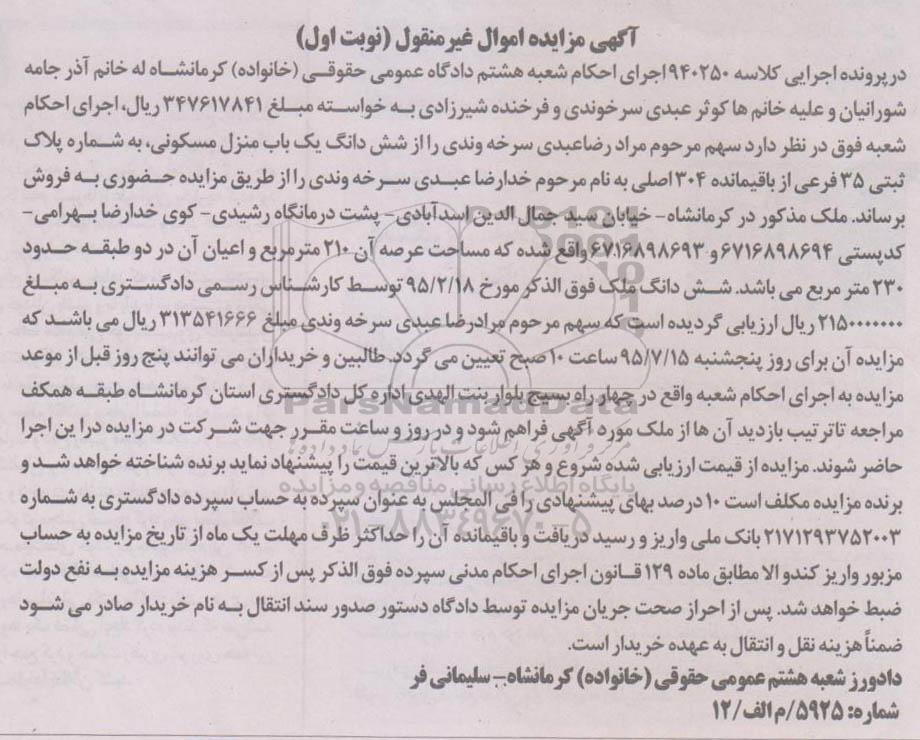 آگهی مزایده اموال غیرمنقول (نوبت اول)
درپرونده اجرایی کلاسه ۹۴۰۲۵۰اجرای احکام شعبه هشتم دادگاه عمومی حقوقی (خانواده) کرمانشاه له خانم آذر جامه
شورانیان و علیه خانم ها کوثر عبدی سرخوندی و فرخنده شیرزادی به خواسته مبلغ ۳۴۷۶۱۷۸۴۱ ریال، اجرای احکام
شعبه فوق در نظر دارد سهم مرحوم مراد رضاعبدی سرخه وندی را از شش دانگ یک باب منزل مسکونی، به شماره پلاک
ثبتی ۳۵ فرعی از باقیمانده ۳۰۴ اصلی به نام مرحوم خدارضا عبدی سرخه وندی را از طریق مزایده حضوری به فروش
برساند. ملک مذکور در کرمانشاه- خیابان سید جمال الدین اسدآبادی- پشت درمانگاه رشیدی- کوی خدارضا بهرامی-
کدپستی ۶۷۱۶۸۹۸۶۹۴ و ۶۷۱۶۸۹۸۶۹۳ واقع شده که مساحت عرصه آن ۲۱۰ مترمربع و اعیان آن در دو طبقه حدود
۲۳۰ متر مربع می باشد. شش دانگ ملک فوق الذکر مورخ ۹۵/۲/۱۸ توسط کارشناس رسمی دادگستری به مبلغ
۲۱۵۰۰۰۰۰۰۰ ریال ارزیابی گردیده است که سهم مرحوم مرادرضا عبدی سرخه وندی مبلغ ۳۱۳۵۴۱۶۶۶ ریال می باشد که
مزایده آن برای روز پنجشنبه ۹۵/۷/۱۵ ساعت ۱۰ صبح تعیین می گردد. طالبین و خریداران می توانند پنج روز قبل از موعد
مزایده به اجرای احکام شعبه واقع در چهار راه بسیج بلوار بنت الهدی اداره کل دادگستری استان کرمانشاه طبقه همکف
مراجعه تاترتیب بازدید آن ها از ملک مورد آگهی فراهم شود و در روز و ساعت مقرر جهت شرکت در مزایده دراین اجرا
حاضر شوند. مزایده از قیمت ارزیابی شده شروع و هر کس که بالاترین قیمت را پیشنهاد نماید برنده شناخته خواهد شد و
برنده مزایده مکلف است ۱۰ درصد بهای پیشنهادی را فی المجلس به عنوان سپرده به حساب سپرده دادگستری به شماره
۲۱۷۱۲۹۳۷۵۲۰۰۳ بانک ملی واریز و رسید دریافت و باقیمانده آن را حداکثر ظرف مهلت یک ماه از تاریخ مزایده به حساب
مزبور واریز کندو الا مطابق ماده ۱۲۹ قانون اجرای احکام مدنی سپرده فوق الذکر پس از کسر هزینه مزایده به نفع دولت
ضبط خواهد شد. پس از احراز صحت جریان مزایده توسط دادگاه دستور صدور سند انتقال به نام خریدار صادر می شود
ضمناً هزینه نقل و انتقال به عهده خریدار است.
دادورز شعبه هشتم عمومی حقوقی (خانواده) کرمانشاه- سلیمانی فر
شماره: ۵۹۲۵/م الف/۱۲
ParsNamadData
پایگاه اطلاع رسانی مناقصه و مزایده
۰۲۱-۸۸۳۴۹۶۷۰-۵